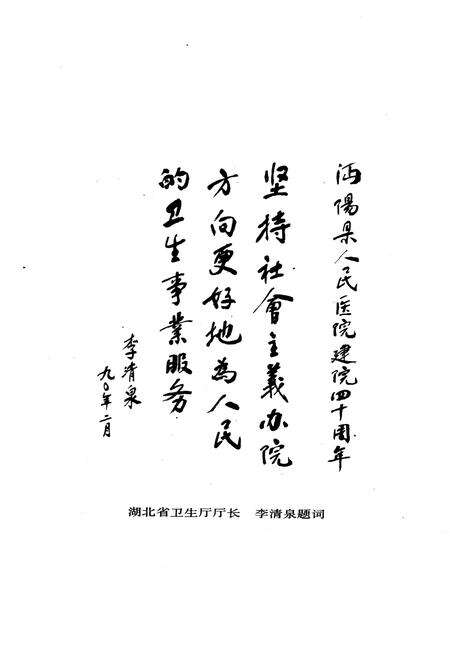 沔陽县人民医院建院四十周年
坚持社會主義办院
方向更好地為人民
的卫生事業服务
李清泉
九〇年二月
湖北省卫生厅厅长 李清泉题词